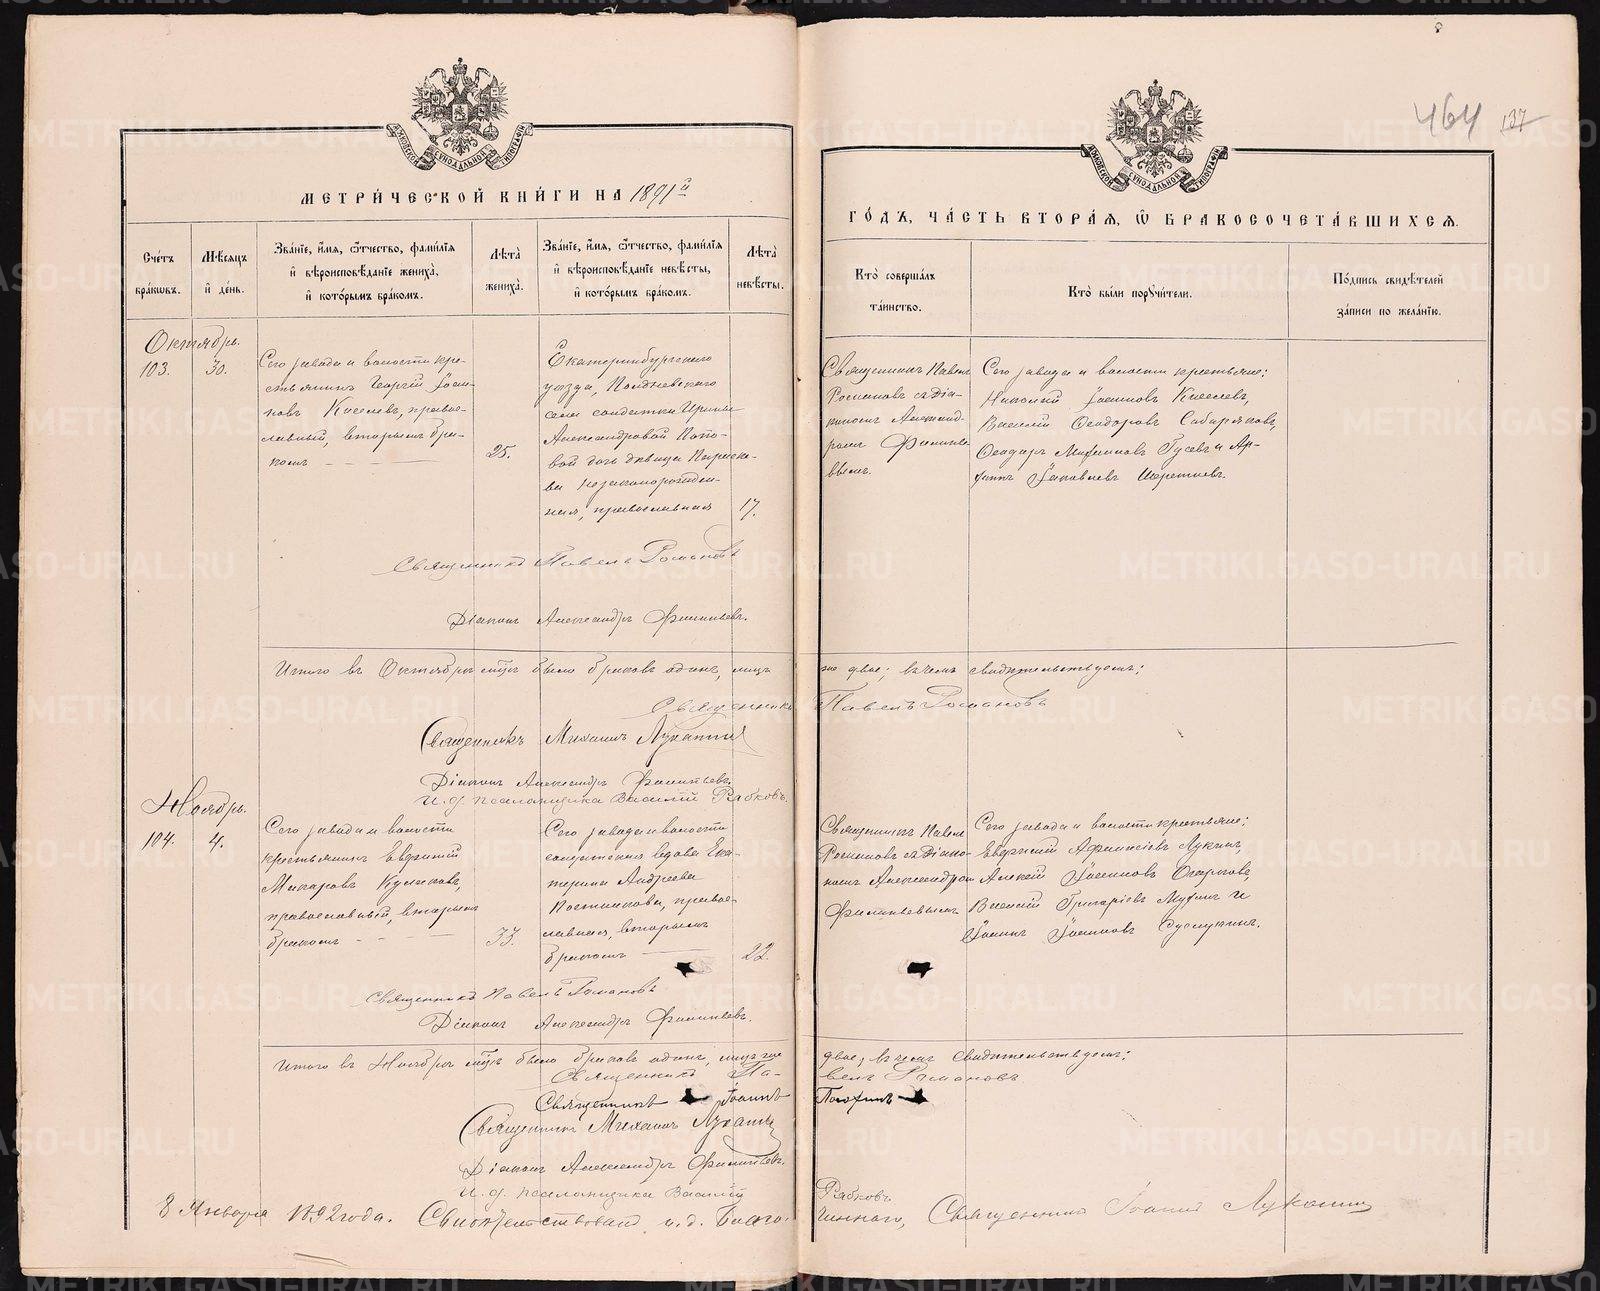 464 137
МЕТРИЧЕСКОЙ КНИГИ НА 1891й
ГОДЪ, ЧАСТЬ ВТОРАЯ, Ѡ БРАКОСОЧЕТАВШИХСЯ.
Счетъ браковъ.
Мѣсяцъ и день.
Званіе, имя, ѿчество, фамилія и вѣроисповѣданіе жениха, и которымъ бракомъ.
Лѣта жениха.
Званіе, имя, ѿчество, фамилія и вѣроисповѣданіе невѣсты, и которымъ бракомъ.
Лѣта невѣсты.
Кто совершалъ таинство.
Кто были поручители.
Подпись свидѣтелей записи по желанію.
Октябрь.
103. 30.
Сего завода и волости кре-
стьянинъ Георгій Іоан-
новъ Киселевъ, правос-
лавный, вторымъ бра-
комъ
25.
Екатеринбургскаго
уѣзда, Полдневскаго
села солдатки Ирины
Александровой Попо-
вой дочь дѣвица Параске-
ва незаконорожден-
ная, православная
17.
Священникъ Павелъ
Романовъ съ Діа-
кономъ Александ-
ромъ Филипье-
вымъ.
Сего завода и волости крестьяне:
Николай Іоанновъ Киселевъ,
Василій Ѳеодоровъ Сибиряковъ,
Ѳеодоръ Гусевъ и
Іаковлевъ
Священникъ Павелъ Романовъ
Діаконъ Александръ Филипьевъ.
Итого въ Октябрѣ мцѣ было браковъ одинъ, лицъ
же двое; въ чемъ свидѣтельствуемъ:
Священникъ Павелъ Романовъ
Священникъ Михаилъ Луканинъ
Діаконъ Александръ Филипьевъ.
И. д. псаломщика Василій Рябковъ.
Ноябрь.
104. 4.
Сего завода и волости
крестьянинъ
Макаровъ Куликовъ,
православный, вторымъ
бракомъ
33.
Сего завода и волости
солдатская вдова Ека-
терина Андреева
Постникова, правос-
лавная, вторымъ
бракомъ
22.
Священникъ Павелъ
Романовъ съ Діако-
номъ Александромъ
Филипьевымъ
Сего завода и волости крестьяне:
Лукинъ,
Алексій Іоанновъ
Василій Григоріевъ Мухинъ и
Іоаннъ Іоанновъ
Священникъ Павелъ Романовъ
Діаконъ Александръ Филипьевъ.
Итого въ Ноябрѣ мцѣ было браковъ одинъ, лицъ же
двое, въ чемъ свидѣтельствуемъ:
Священникъ Па-
велъ Романовъ
Священникъ Іоаннъ
Священникъ Михаилъ Луканинъ
Діаконъ Александръ Филипьевъ.
И. д. псаломщика Василій
Рябковъ
8 Января 1892 года. Свидѣтельствовалъ и. д. Благо-
чиннаго, Священникъ Іоаннъ Луканинъ
METRIKI.GASO-URAL.RU